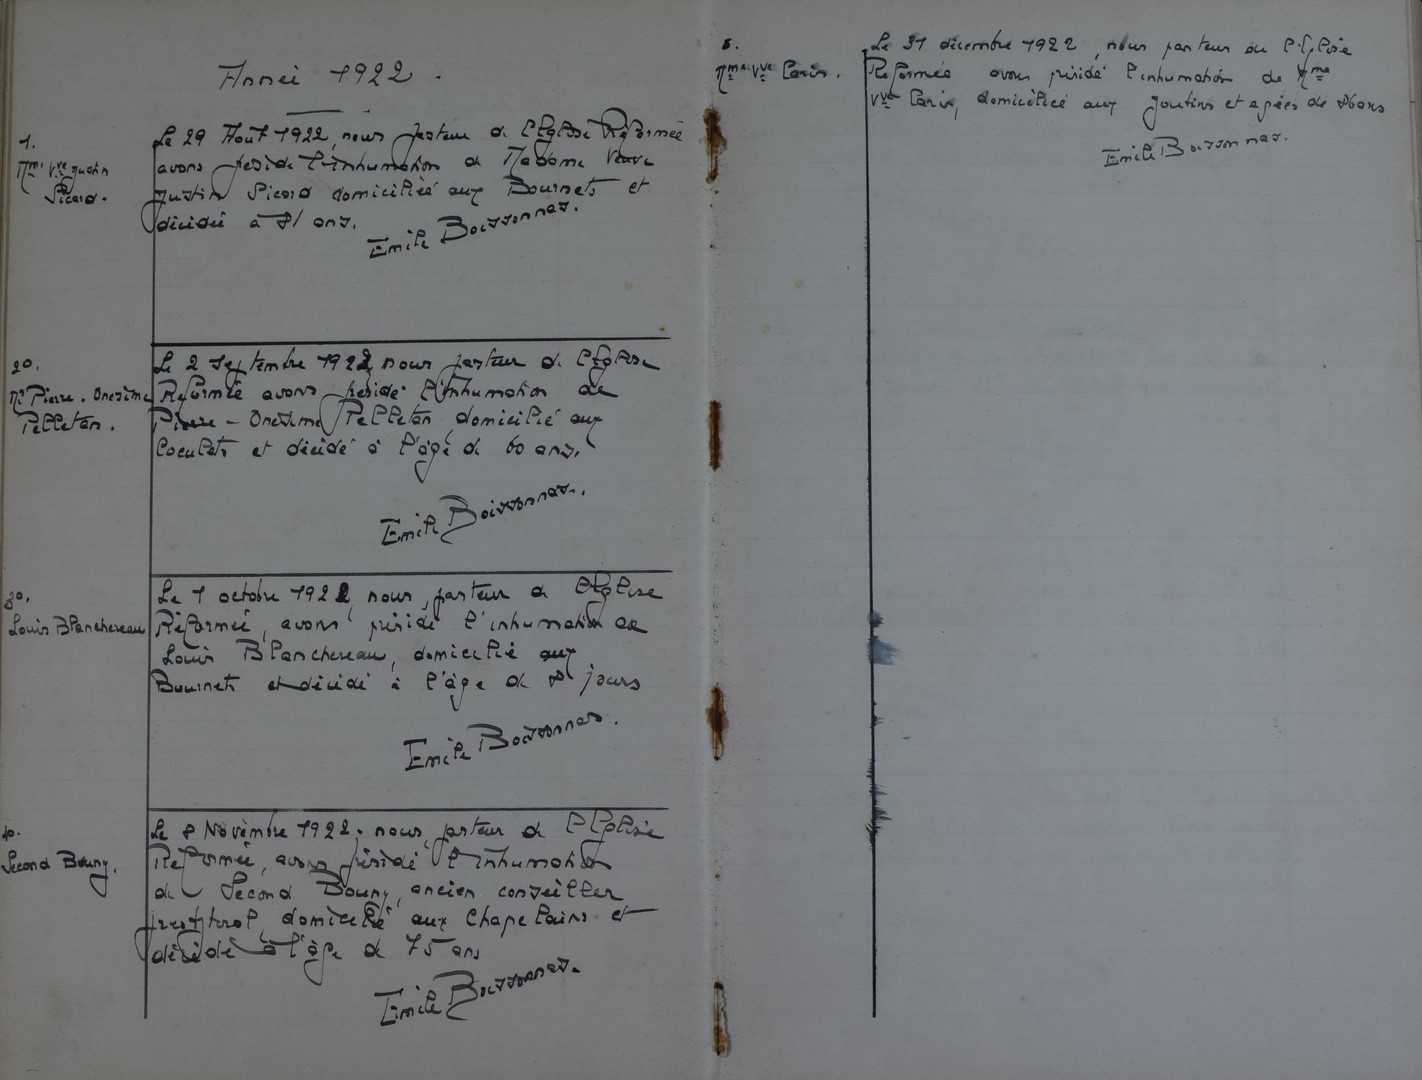 Année 1922.
1.
Mme Vve Justin
Picard.
Le 29 Août 1922, nous pasteur de l'Eglise Réformée
avons présidé l'inhumation de Madame Veuve
Justin Picard domiciliée aux Bournets et
décédée à 81 ans.
Emile Boissonnas.
2º.
Mr Pierre-Onésime
Pelletan.
Le 2 Septembre 1922, nous pasteur de l'Eglise
Réformée avons présidé l'inhumation de
Pierre-Onésime Pelletan domicilié aux
et décédé à l'âge de 60 ans.
Emile Boissonnas.
3º.
Louis Blanchereau
Le 1 octobre 1922, nous, pasteur de l'Eglise
Réformée, avons présidé l'inhumation de
Louis Blanchereau, domicilié aux
Bournets et décédé à l'âge de 8 jours
Emile Boissonnas.
4º.
Second Bouny.
Le 8 Novembre 1922, nous, pasteur de l'Eglise
Réformée, avons présidé l'inhumation
de Second Bouny, ancien conseiller
presbytéral, domicilié aux Chapelains et
décédé à l'âge de 75 ans
Emile Boissonnas.
5.
Mme Vve Paris.
Le 31 décembre 1922, nous pasteur de l'Eglise
Réformée avons présidé l'inhumation de Mme
Vve Paris, domiciliée aux et agées de 86 ans
Emile Boissonnas.